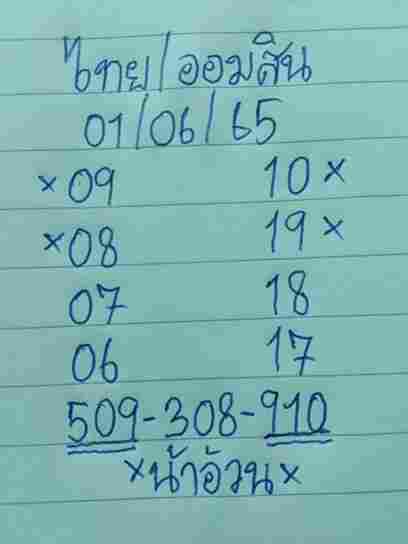 ไทย/ออมสิน
01/06/65
×09 10×
×08 19×
07 18
06 17
509-308-910
×น้าอ้วน×